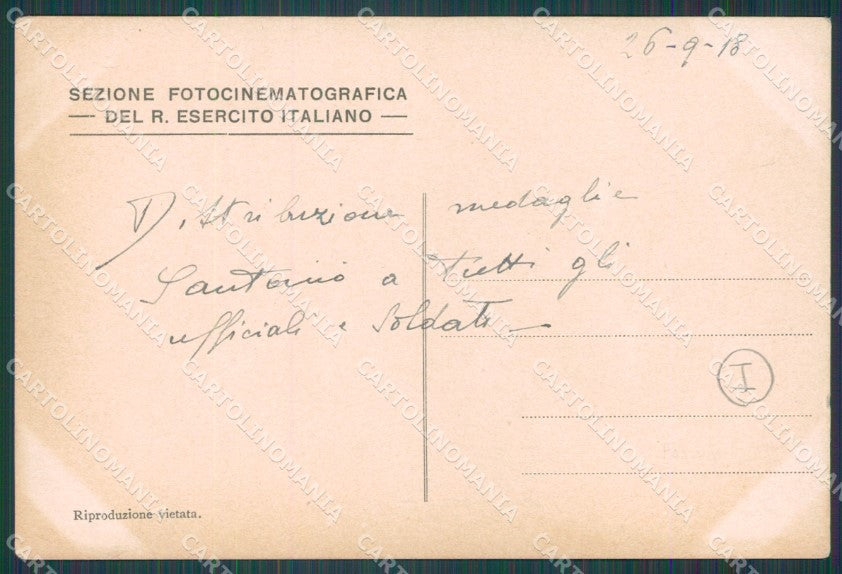 26-9-18
SEZIONE FOTOCINEMATOGRAFICA
— DEL R. ESERCITO ITALIANO —
Distribuzione medaglie
Santonio a tutti gli
ufficiali e Soldati —
I
Riproduzione vietata.
CARTOLINOMANIA